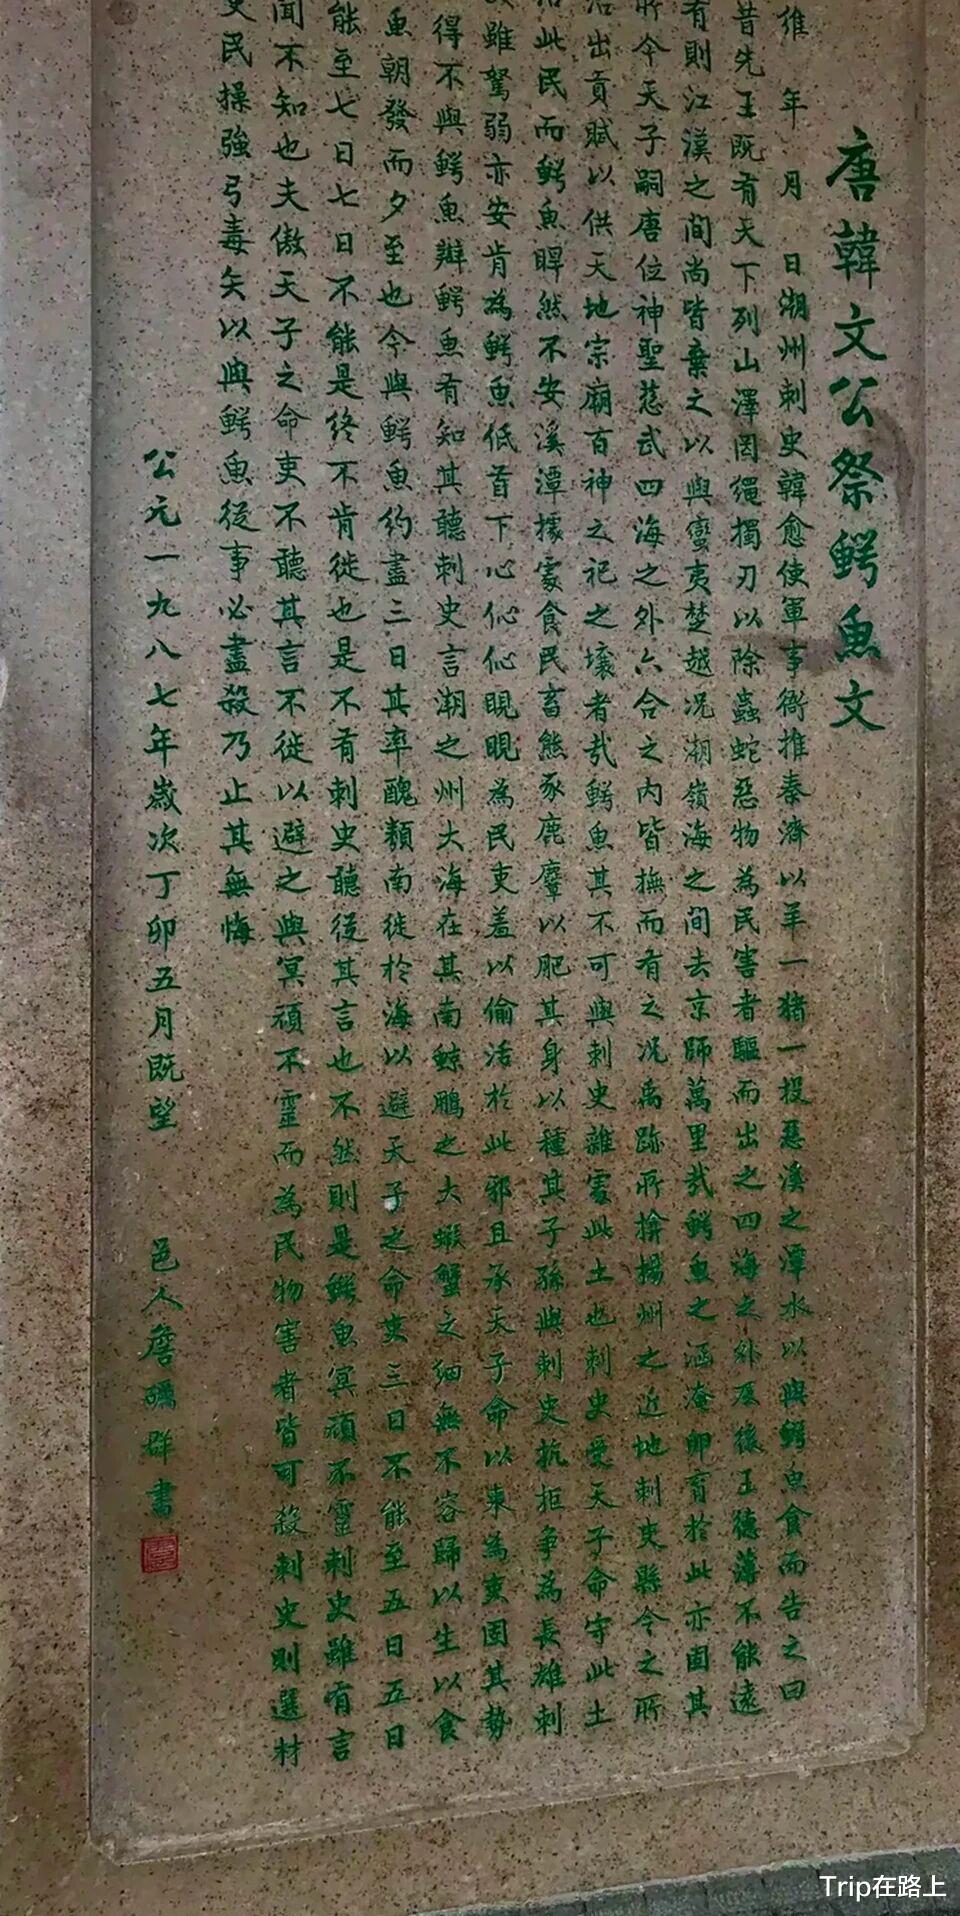 唐韓文公祭鳄魚文
維 年 月 日潮州刺史韓愈使軍事衙推秦濟以羊一豬一投惡溪之潭水以與鳄魚食而告之曰
昔先王既有天下列山澤罔繩擉刃以除蟲蛇惡物為民害者驅而出之四海之外及後王德薄不能遠
有則江漢之間尚皆棄之以與蠻夷楚越況潮嶺海之間去京師萬里哉鳄魚之涵淹卵育於此亦固其
所今天子嗣唐位神聖慈武四海之外六合之內皆撫而有之況禹跡所揜揚州之近地刺史縣令之所
治出貢賦以供天地宗廟百神之祀之壤者哉鳄魚其不可與刺史雜處此土也刺史受天子命守此土
治此民而鳄魚睅然不安溪潭據處食民畜熊豕鹿麞以肥其身以種其子孫與刺史抗拒爭為長雄刺
史雖駑弱亦安肯為鳄魚低首下心伈伈睍睍為民吏羞以偷活於此邪且承天子命以來為吏固其勢
得不與鳄魚辯鳄魚有知其聽刺史言潮之州大海在其南鲸鵬之大蝦蟹之細無不容歸以生以食
魚朝發而夕至也今與鳄魚約盡三日其率醜類南徙於海以避天子之命吏三日不能至五日五日
能至七日七日不能是終不肯徙也是不有刺史聽從其言也不然則是鳄魚冥頑不靈刺史雖有言
聞不知也夫傲天子之命吏不聽其言不徙以避之與冥頑不靈而為民物害者皆可殺刺史則選材
吏民操強弓毒矢以與鳄魚從事必盡殺乃止其無悔
公元一九八七年歲次丁卯五月既望 邑人詹礪群書
Trip在路上